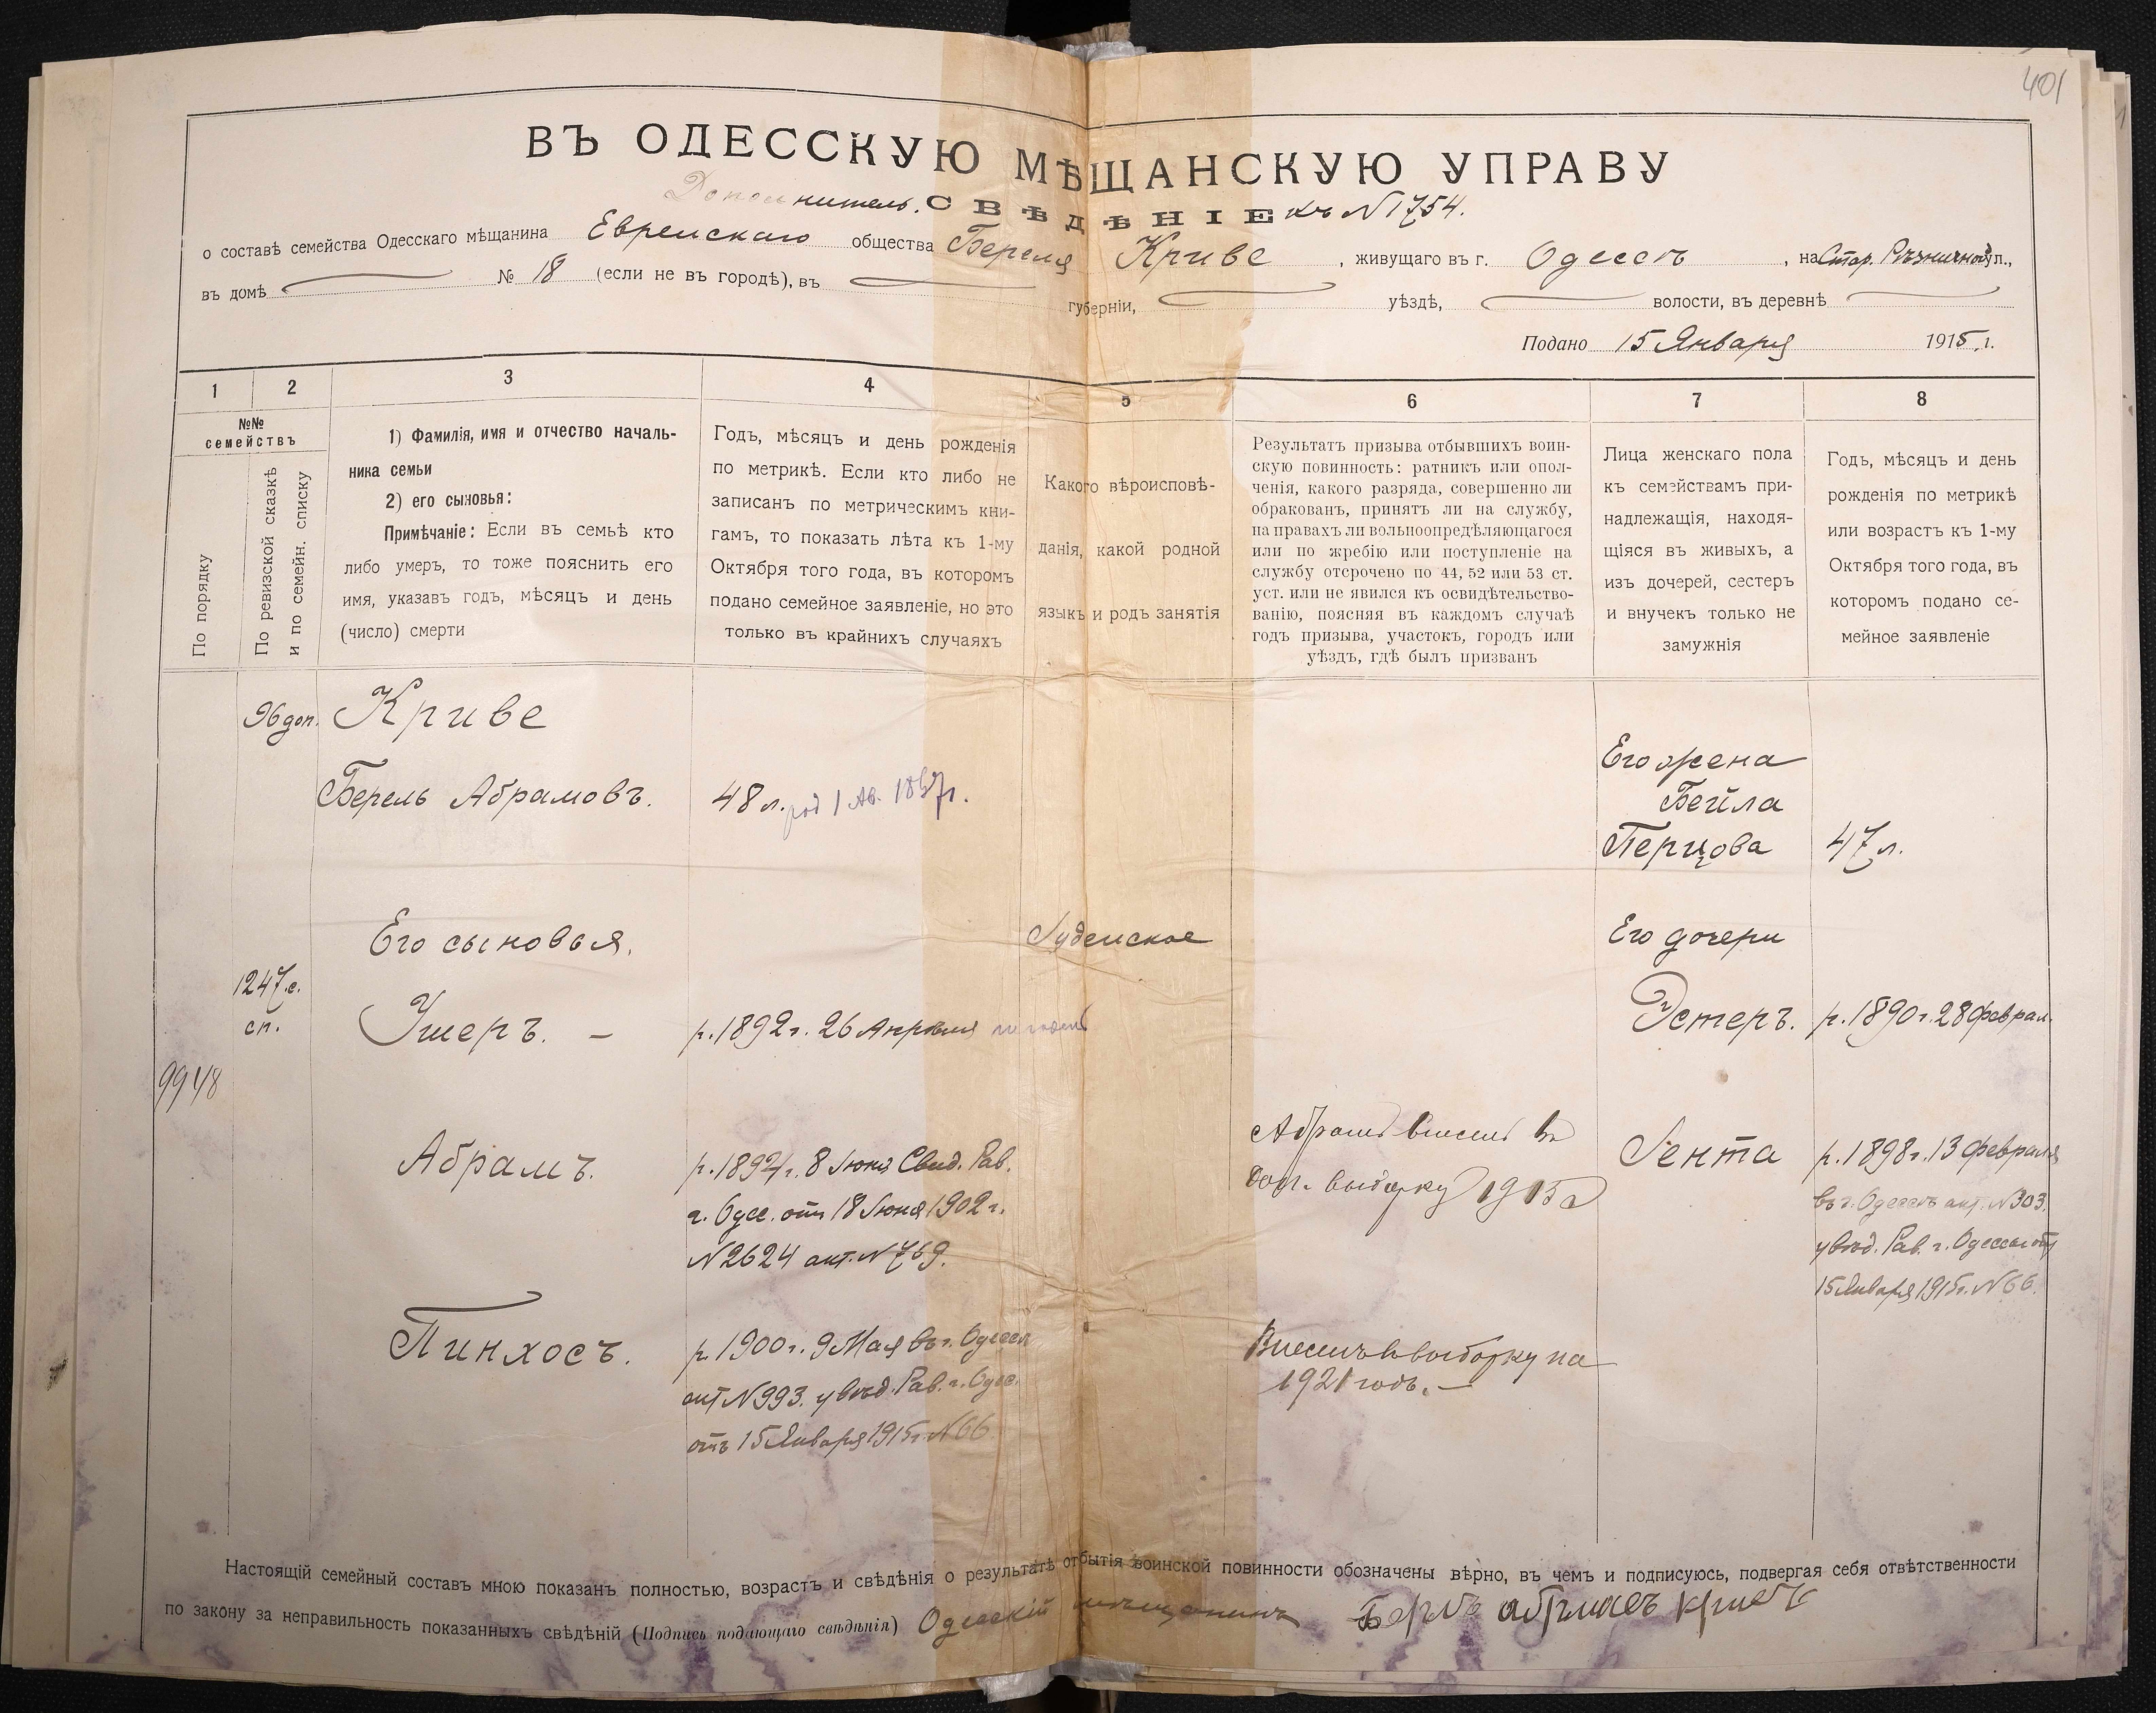 401
ВЪ ОДЕССКУЮ МѢЩАНСКУЮ УПРАВУ
Дополнитель. СВѢДѢНІЕ къ N 1754.
о составѣ семейства Одесскаго мѣщанина Еврейскаго общества Береля Криве, живущаго въ г. Одессѣ, на Стар. Рѣзничной ул.,
въ домѣ № 18 (если не въ городѣ), въ губерніи, уѣздѣ, волости, въ деревнѣ
Подано 15 Января 1915 г.
1 2 3 4 5 6 7 8
№№ семействъ
По порядку
По ревизской сказкѣ
и по семейн. списку
1) Фамилія, имя и отчество началь-
ника семьи
2) его сыновья:
Примѣчаніе: Если въ семьѣ кто
либо умеръ, то тоже пояснить его
имя, указавъ годъ, мѣсяцъ и день
(число) смерти
Годъ, мѣсяцъ и день рожденія
по метрикѣ. Если кто либо не
записанъ по метрическимъ кни-
гамъ, то показать лѣта къ 1-му
Октября того года, въ которомъ
подано семейное заявленіе, но это
только въ крайнихъ случаяхъ
Какого вѣроисповѣ-
данія, какой родной
языкъ и родъ занятія
Результатъ призыва отбывшихъ воин-
скую повинность: ратникъ или опол-
ченія, какого разряда, совершенно ли
обракованъ, принятъ ли на службу,
на правахъ ли вольноопредѣляющагося
или по жребію или поступленіе на
службу отсрочено по 44, 52 или 53 ст.
уст. или не явился къ освидѣтельство-
ванію, поясняя въ каждомъ случаѣ
годъ призыва, участокъ, городъ или
уѣздъ, гдѣ былъ призванъ
Лица женскаго пола
къ семействамъ при-
надлежащія, находя-
щіяся въ живыхъ, а
изъ дочерей, сестеръ
и внучекъ только не
замужнія
Годъ, мѣсяцъ и день
рожденія по метрикѣ
или возрастъ къ 1-му
Октября того года, въ
которомъ подано се-
мейное заявленіе
96 доп. Криве
Берель Абрамовъ. 48 л. род 1 Ав. 1867 г.
Его жена
Бейла
Перцова 47 л.
Его сыновья.
Іудейское
Его дочери
1247 с.
сп.
Ушеръ. – р. 1892 г. 26 Апрѣля
Эстеръ. р. 1890 г. 28 Феврал.
9948
Абрамъ. р. 1894 г. 8 Іюня Свид. Рав.
г. Одес. отъ 18 Іюня 1902 г.
N 2624 акт. N 769.
Абрамъ внесенъ въ
доп. выборку 1915 г
Гента р. 1898 г. 13 Февраля
въ г. Одессѣ акт. N 303.
увѣд. Рав. г. Одессы отъ
15 Января 1915 г. N 66.
Пинхосъ. р. 1900 г. 9 Мая въ г. Одессѣ
акт N 993. увѣд. Рав. г. Одес.
отъ 15 Января 1915 г. N 66
Внесенъ въ выборку на
1921 годъ. –
Настоящій семейный составъ мною показанъ полностью, возрастъ и свѣдѣнія о результатѣ отбытія воинской повинности обозначены вѣрно, въ чемъ и подписуюсь, подвергая себя отвѣтственности
по закону за неправильность показанныхъ свѣдѣній (Подпись подающаго свѣдѣнія) Одесскій мѣщанинъ